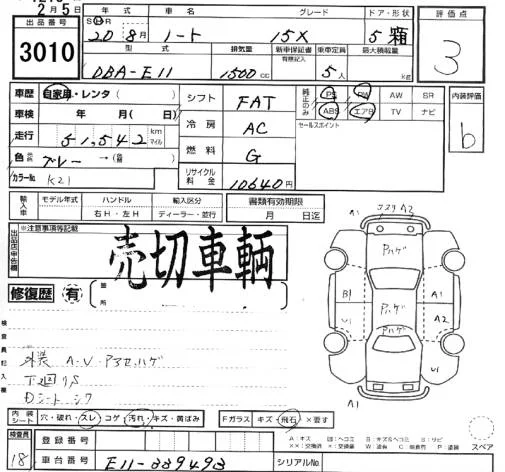 2月5日
出品番号 年式 車名 グレード ドア・形状 評価点
3010
S H 20 8月 ノート 15X 5 箱
3
型式 排気量 新車保証書 乗車定員 最大積載量
有無記入
DBA-E11 1500cc 5人 kg
車歴 自家用・レンタ( ) シフト FAT 純正のみ PS PW AW SR 内装評価
ABS エアB TV ナビ
車検 年 月( 日) 冷房 AC セールスポイント
b
走行 51,542 km マイル
燃料 G
色 グレー →( )
リサイクル料金 10640円
カラーNo. K21
輸入車 モデル年式 ハンドル 輸入区分 書類有効期限
右H・左H ディーラー・並行 月 日迄
出品店申告欄 ※注意事項等記載
売切車輌
修復歴 有 箇所
A1 コスリ A2
ハゲ
B1 ハゲ A1
U1 A2
ハゲ
U1
A1
検査員記入欄
外装 A・U・アヨセ、ハゲ
下廻りS
Dシートシワ
内装シート 穴・破れ・スレ コゲ・汚れ・キズ・黄ばみ Fガラス キズ・飛石・×要す スペア
検査員 18
登録番号
A:キズ B:キズ&ヘコミ S:サビ
××:交換済 ×:交換要 W:波有 C:腐食有 P:塗装
車台番号 E11-339493 シリアルNo.